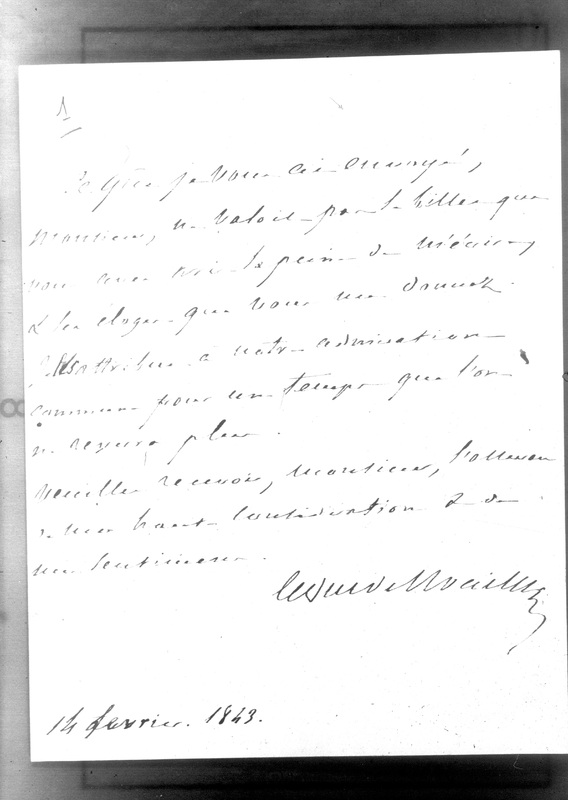 1
ce que je vous ai envoyé,
monsieur, ne valoit pas le billet que
vous avez pris la peine de m'écrire,
& les éloges que vous me donnez.
je les attribue à notre admiration
commune pour un temps que l'on
ne reverra plus.
veuillez recevoir, monsieur, l'assurance
de ma haute considération & de
mes sentimens.
le Duc de Noailles
14 février. 1843.